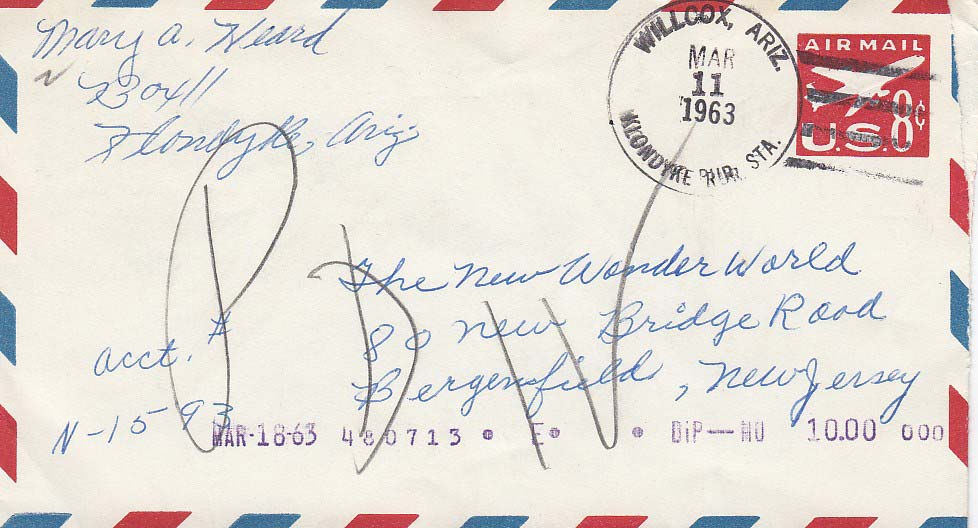 Mary A. Heard
23041
Klondyke, Ariz
WILLCOX, ARIZ.
MAR
11
1963
KLONDYKE RUR. STA.
AIR MAIL
8¢
U.S.
PDW
The New Wonder World
80 New Bridge Road
Bergenfield, New Jersey
acct. #
N-1593
MAR-18-63 480713 • E• • DiP—NO 10.00 000